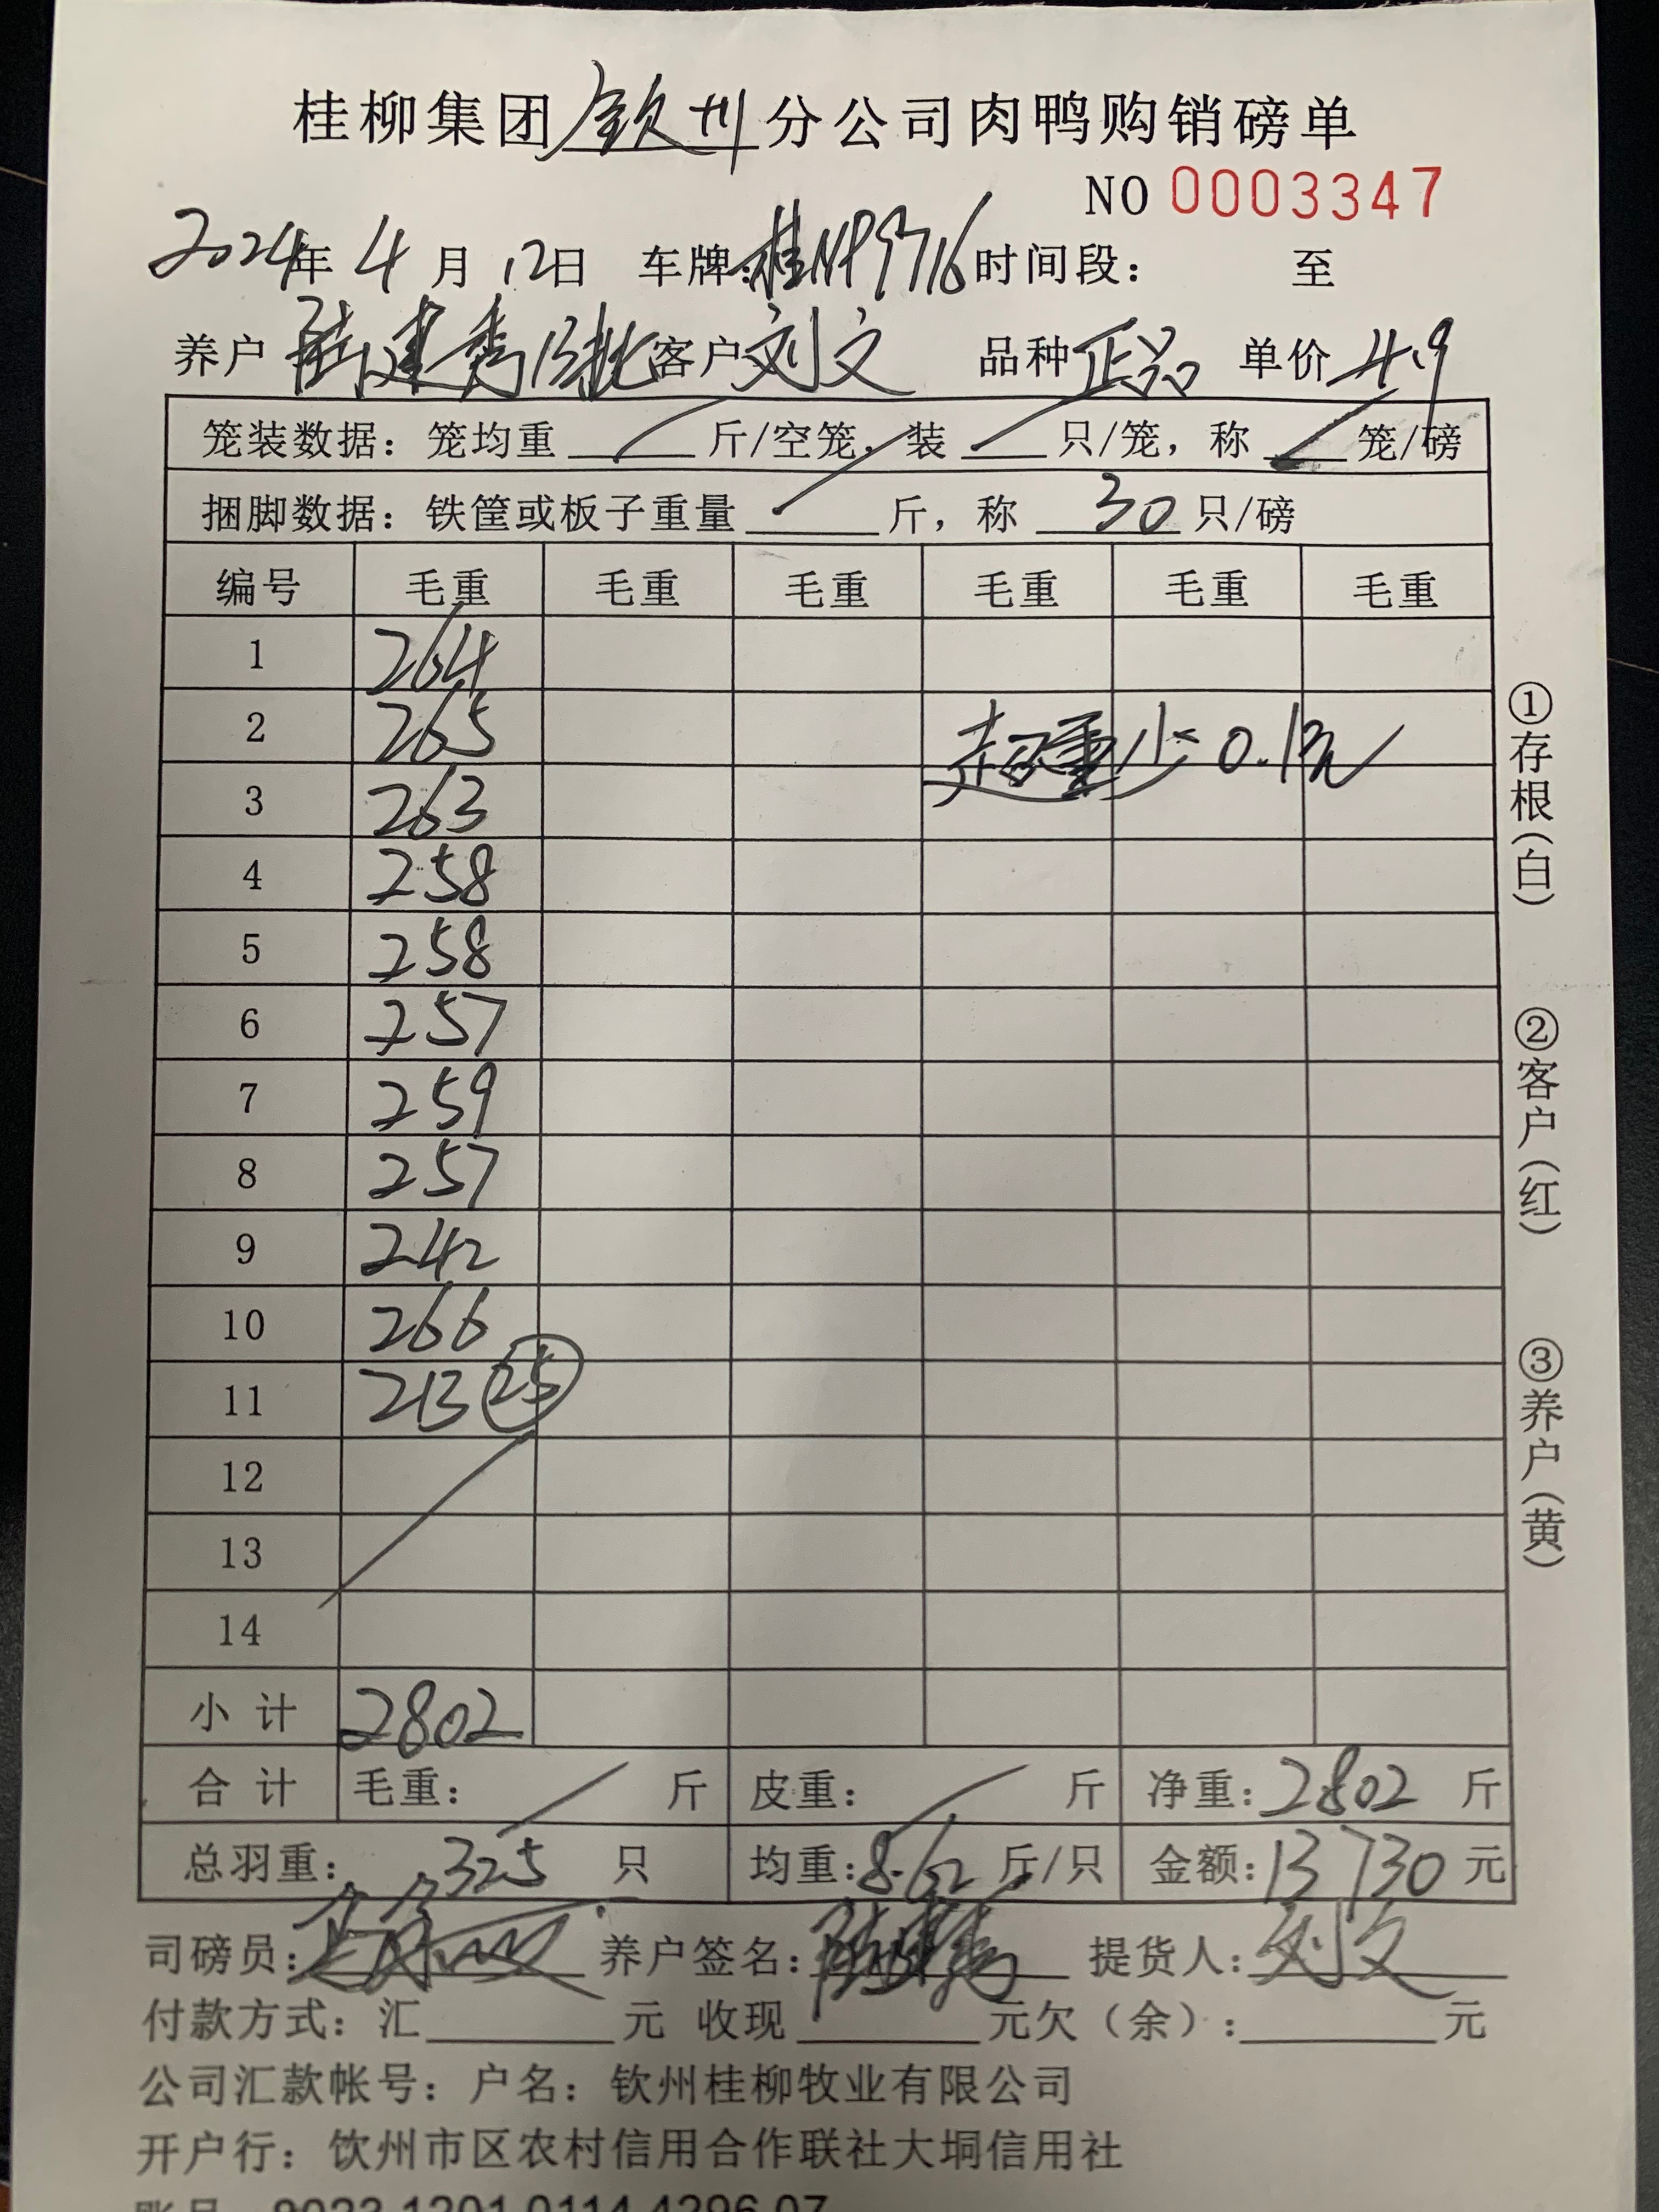 桂柳集团钦州分公司肉鸭购销磅单
NO 0003347
2024年 4月 12日 车牌:桂NP9716 时间段: 至
养户 陆建秀13批 客户 刘文 品种 正品 单价 4.9
笼装数据: 笼均重 斤/空笼, 装 只/笼, 称 笼/磅
捆脚数据: 铁筐或板子重量 斤, 称 30 只/磅
编号 毛重 毛重 毛重 毛重 毛重 毛重
1 264
2 265 超重少0.1元
3 263
4 258
5 258
6 257
7 259
8 257
9 242
10 266
11 213 25
12
13
14
小计 2802
合计 毛重: 斤 皮重: 斤 净重: 2802 斤
总羽重: 325 只 均重: 8.62 斤/只 金额: 13730 元
司磅员: 养户签名: 陆建秀 提货人: 刘文
付款方式: 汇 元 收现 元 欠(余): 元
公司汇款帐号: 户名: 钦州桂柳牧业有限公司
开户行: 钦州市区农村信用合作联社大垌信用社
①存根(白)
②客户(红)
③养户(黄)